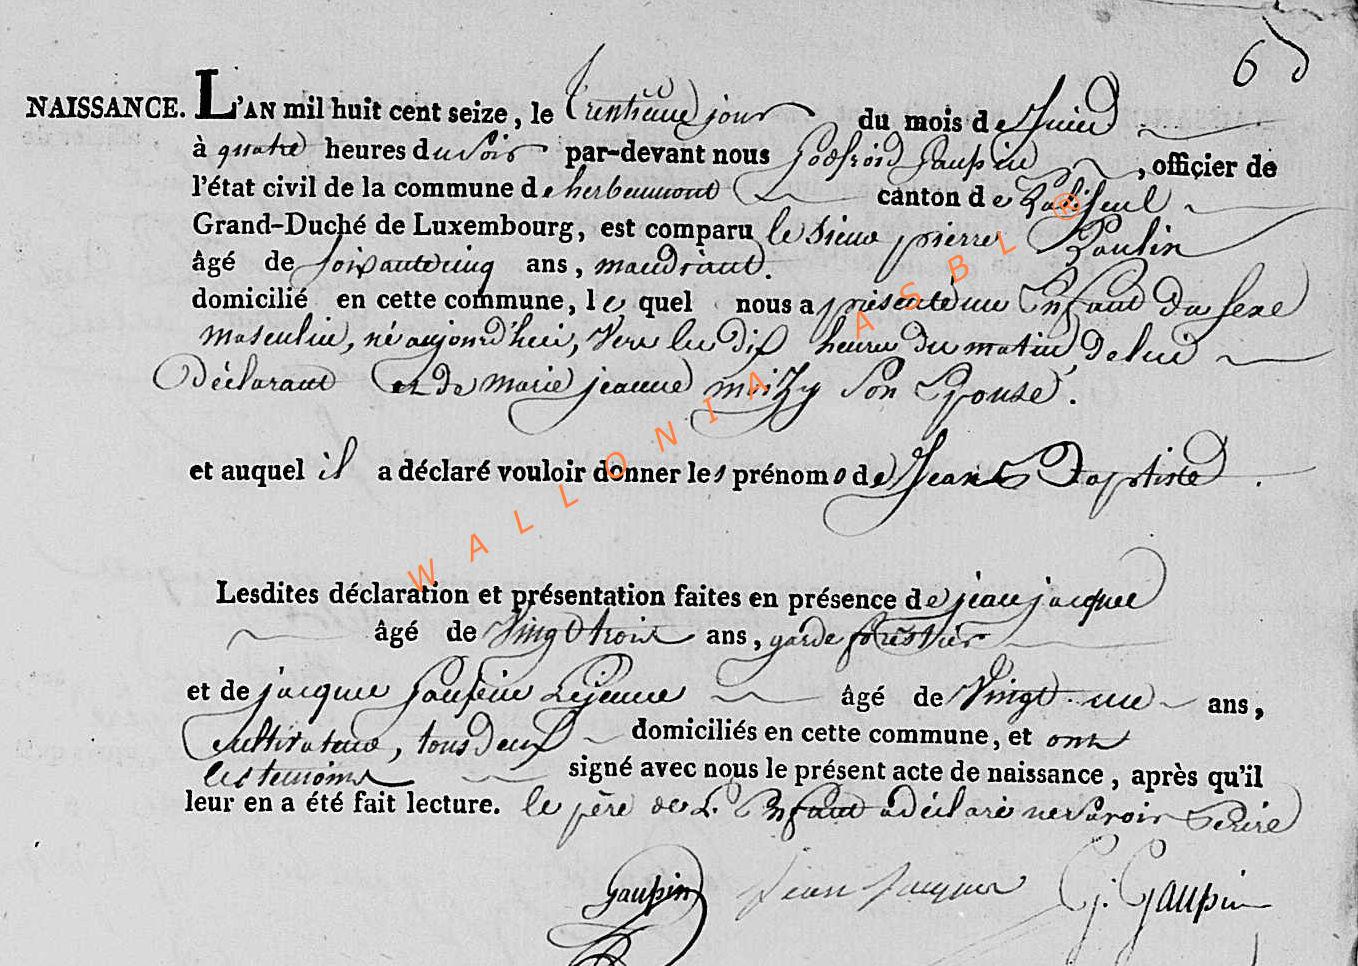 6
NAISSANCE. L'AN mil huit cent seize, le trentieme jour du mois de Juin
à quatre heures du soir par-devant nous Godfroid Gaupin, offiçier de
l'état civil de la commune de herbeumont canton de Paliseul
Grand-Duché de Luxembourg, est comparu le sieur pierre Poulin
âgé de soixante cinq ans, mandriant.
domicilié en cette commune, le quel nous a présenté un Enfant du sexe
masculin, né aujourd'hui, vers les dix heures du matin de lui
déclarant et de marie jeanne son Epouse.
et auquel il a déclaré vouloir donner les prénoms de Jean Baptiste.
Lesdites déclaration et présentation faites en présence de jean jacques
âgé de Vingt trois ans, garde forestier
et de jacques Gaupin Lejeune âgé de Vingt un ans,
cultivateur, tous deux domiciliés en cette commune, et ont
les temoins signé avec nous le présent acte de naissance, après qu'il
leur en a été fait lecture. le père de L'Enfant a déclaré ne savoir Ecrire
Gaupin Jean Jacques G. Gaupin
WALLONIA ASBL ®